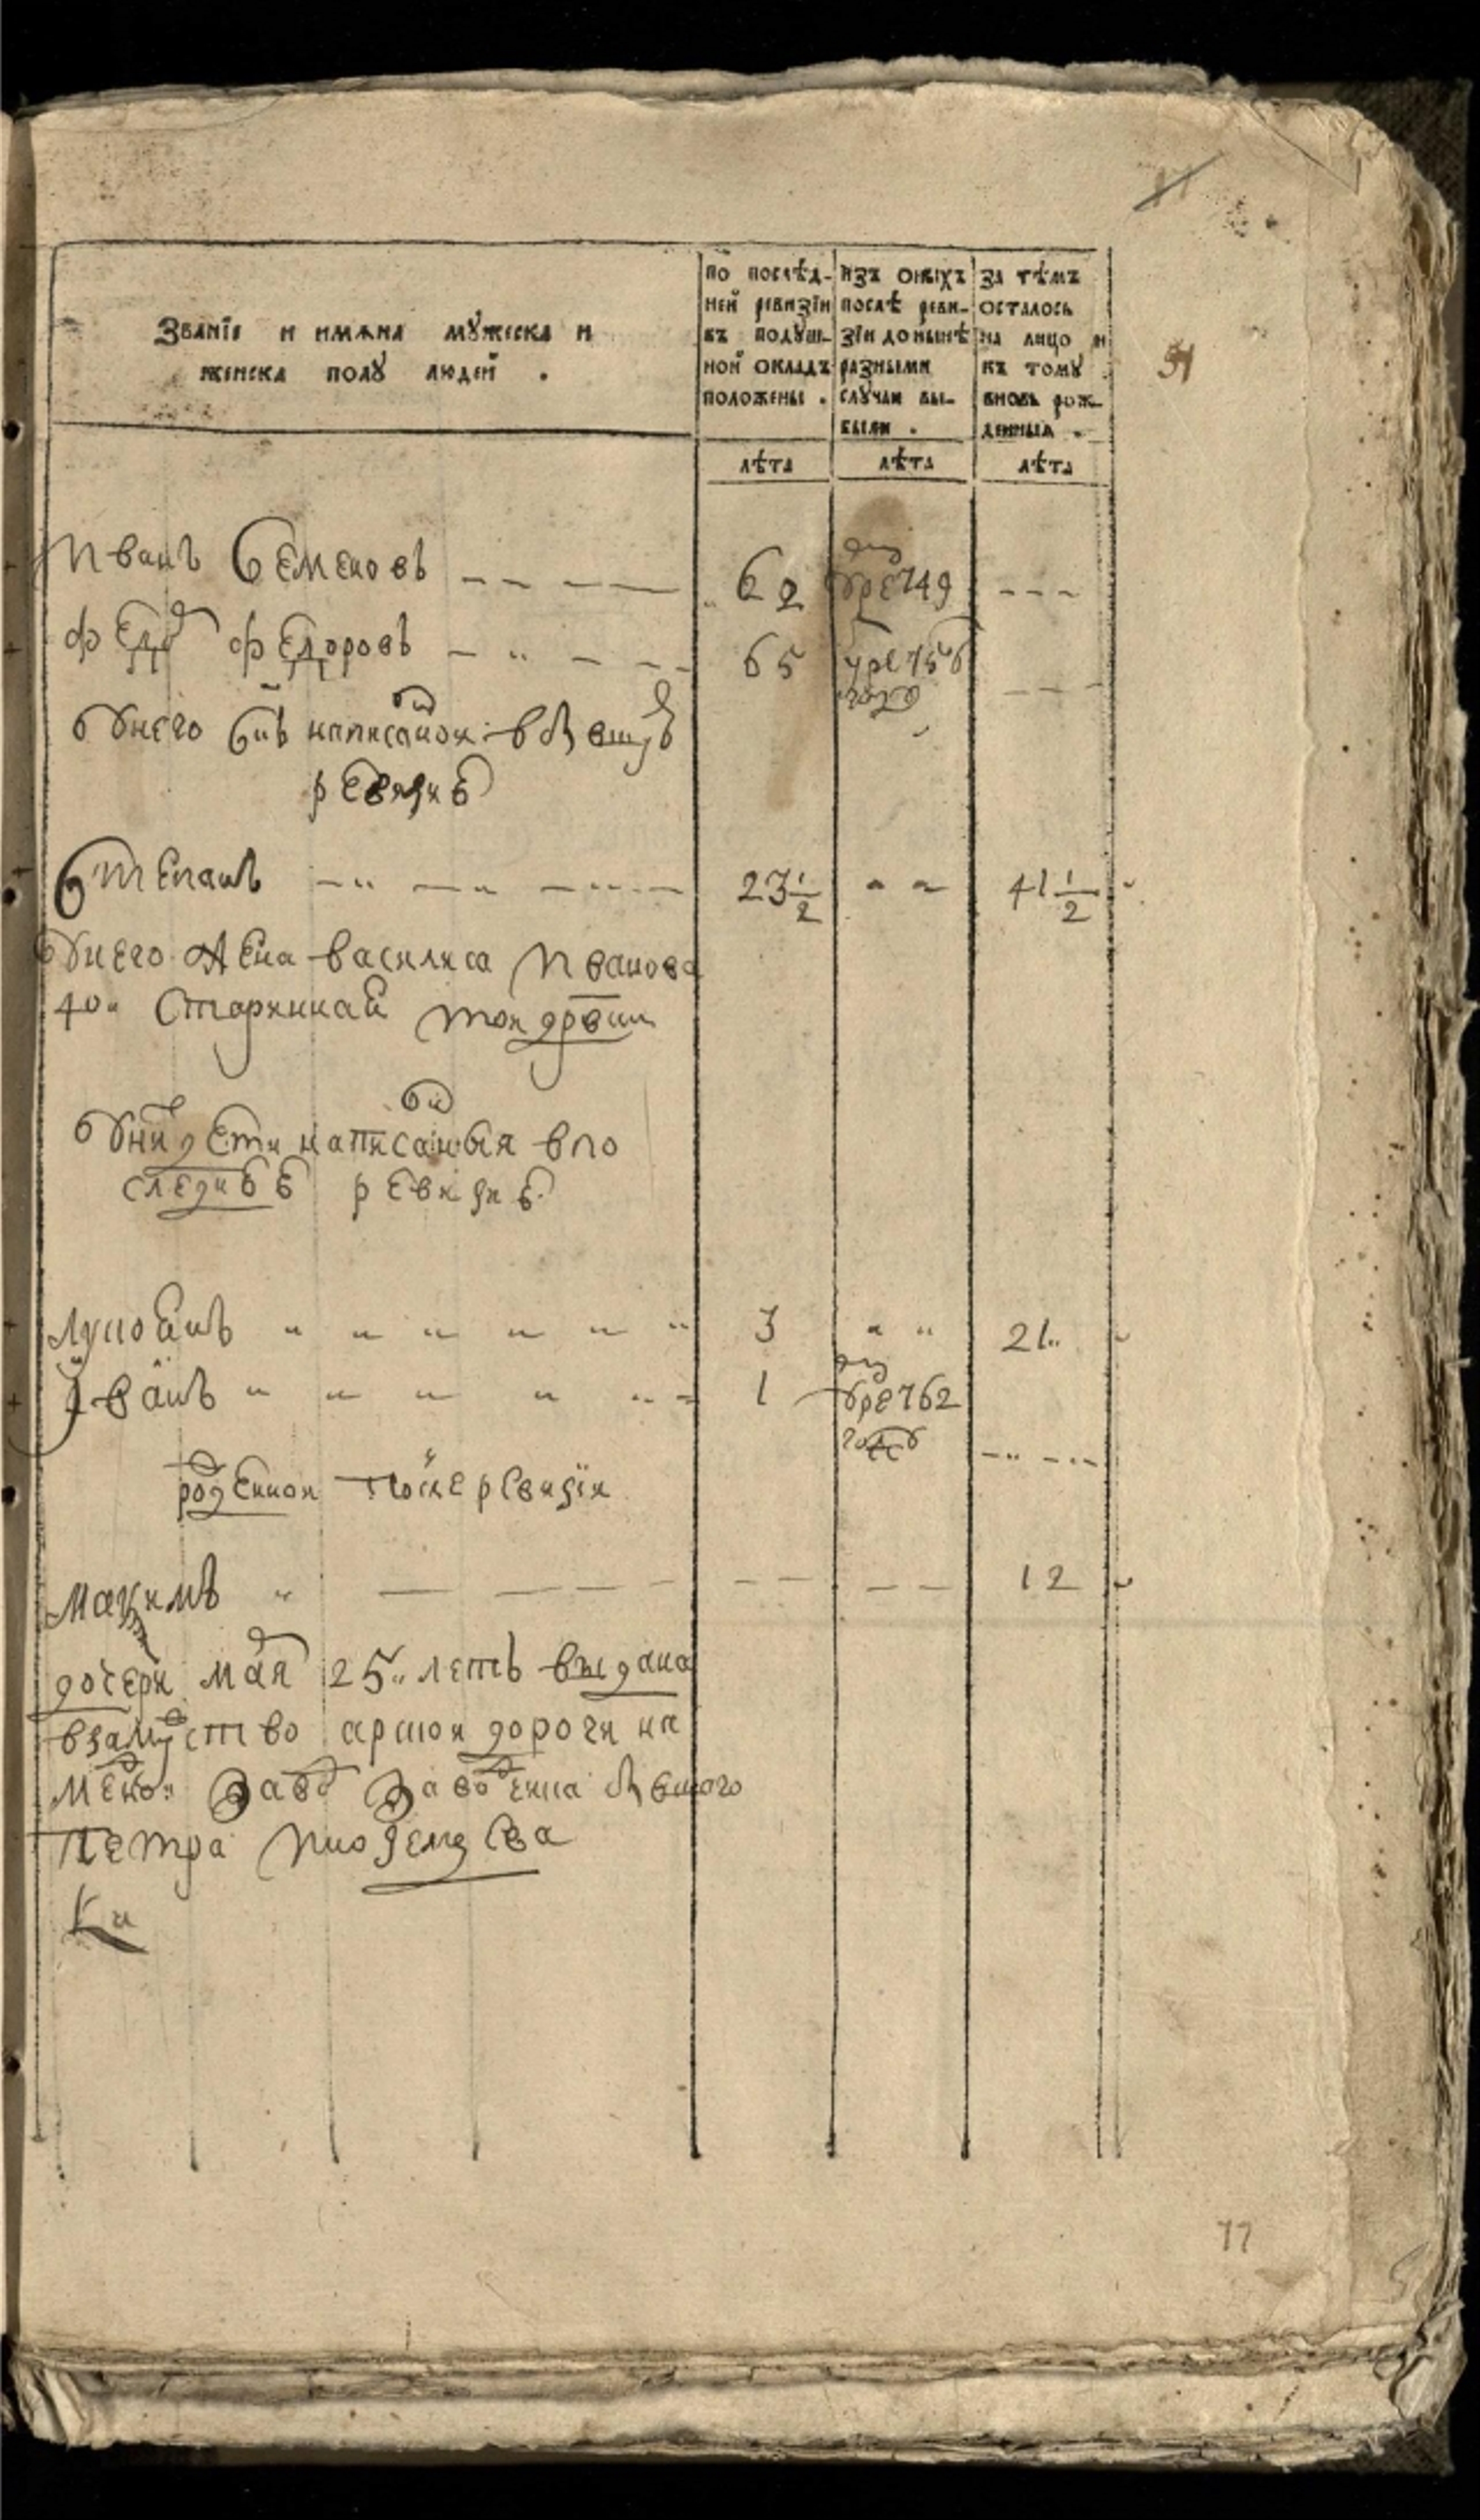 Званїе и имѧна мꙋжеска и
женска полꙋ людей .
по послѣд-
ней ревизїи
въ подꙋш-
ной окладъ
положены .
изъ оныхъ
послѣ реви-
зїи до нынѣ
разными
слꙋчаи вы-
были .
за тѣмъ
осталось
на лицо и
къ томꙋ
вновь рож-
денныа .
лѣта лѣта лѣта
51
Иванъ Семеновъ 62 749
Федоръ Федоровъ 65 умре 756
году
у него снъ написанои в
ревизиѣ
Степанъ 23 1/2 41 1/2
у него жена василиса Иванова
40 Старинная тои дрвни
у них дети написаныя в по
следнѣе ревизиѣ
лупоянъ 3 21
Iванъ 1 762
году
рожденнои после ревизiи
максимъ 12
дочери маря 25 летъ выдана
взамужство арскои дороги на
завод заводчика
Петра Иноземцева
77